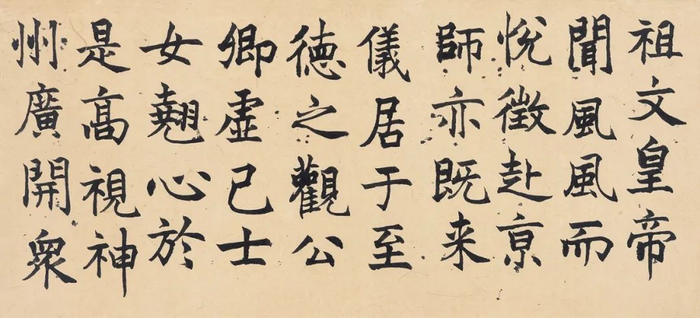 祖文皇帝
聞風風而
悅徵赴京
師亦既来
儀居于至
德之觀公
卿虛己士
女翹心於
是髙視神
州廣開衆